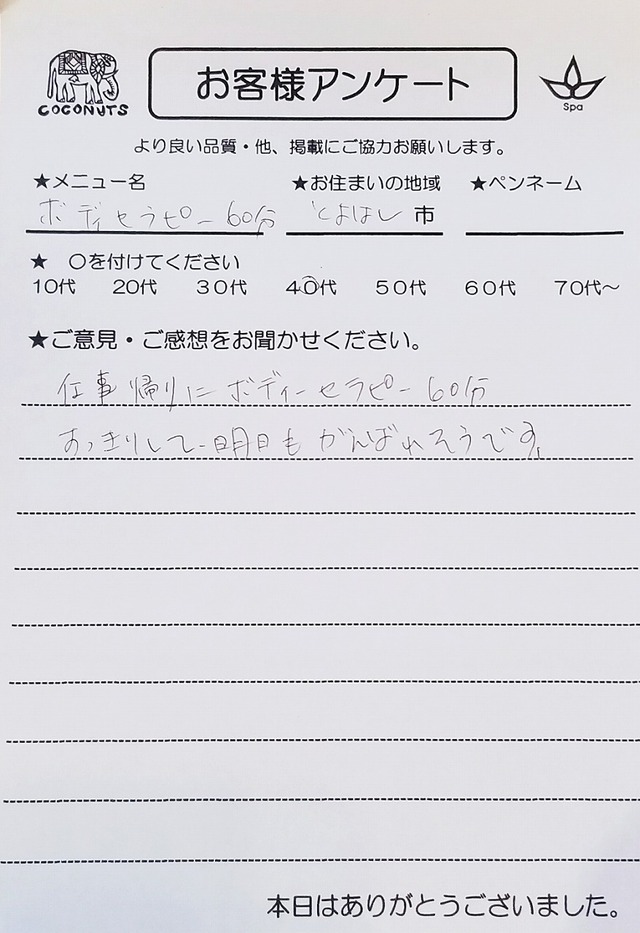 COCONUTS
お客様アンケート
Spa
より良い品質・他、掲載にご協力お願いします。
★メニュー名 ★お住まいの地域 ★ペンネーム
ボディセラピー60分 とよはし 市
★ 〇を付けてください
10代 20代 30代 40代 50代 60代 70代～
★ご意見・ご感想をお聞かせください。
仕事帰りにボディーセラピー60分
すっきりして明日もがんばれそうです。
本日はありがとうございました。